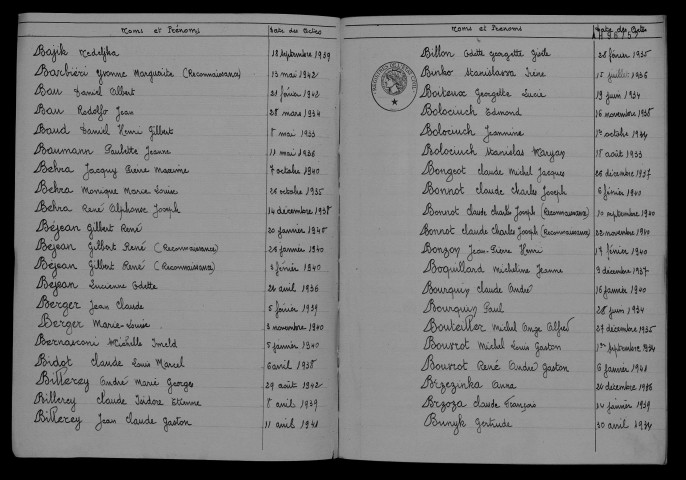 Noms et Prénoms Date des Actes
Bajik Nedeljka 18 septembre 1939
Barbiéri Yvonne Marguerite (Reconnaissance) 13 mai 1942
Bau Daniel Albert 21 février 1942
Bau Rodolfo Jean 28 mars 1934
Baud Daniel Henri Gilbert 8 mai 1933
Baumann Paulette Jeanne 11 mai 1936
Behra Jacquy Pierre Maxime 4 octobre 1940
Behra Monique Marie Louise 26 octobre 1935
Behra René Alphonse Joseph 14 décembre 1938
Béjean Gilbert René 20 janvier 1940
Béjean Gilbert René (Reconnaissance) 26 janvier 1940
Béjean Gilbert René (Reconnaissance) 3 février 1940
Béjean Lucienne Odette 24 avril 1936
Berger Jean Claude 5 février 1939
Berger Marie-Louise 3 novembre 1940
Bernasconi Michelle Imeld 5 janvier 1940
Bidot Claude Louis Marcel 6 avril 1938
Billerey André Marie Georges 29 août 1942
Billerey Claude Isidore Etienne 8 avril 1939
Billerey Jean Claude Gaston 11 avril 1941
Noms et Prénoms Date des Actes
Billon Odette Georgette Gisèle 28 février 1935
Binko Stanislawa Irène 15 juillet 1936
Boiteux Georgette Lucie 19 juin 1934
Bolociuch Edmond 16 novembre 1938
Bolociuch Jeannine 1er octobre 1934
Bolociuch Stanislas Maryan 18 août 1933
Bongeot Claude Michel Jacques 26 décembre 1937
Bonnot Claude Charles Joseph 6 février 1940
Bonnot Claude Charles Joseph (Reconnaissance) 10 septembre 1940
Bonnot Claude Charles Joseph (Reconnaissance) 22 novembre 1940
Bonzon Jean-Pierre Henri 17 février 1940
Boquillard Micheline Jeanne 9 décembre 1937
Bourquin Claude André 16 janvier 1940
Bourquin Paul 28 juin 1934
Bouteiller Michel Ange Alfred 27 décembre 1935
Bouvrot Michel Louis Gaston 1er septembre 1934
Bouvrot René André Gaston 6 janvier 1941
Brzezinka Anna 20 décembre 1936
Brzoza Claude François 24 janvier 1939
Bunyk Gertrude 30 avril 1934